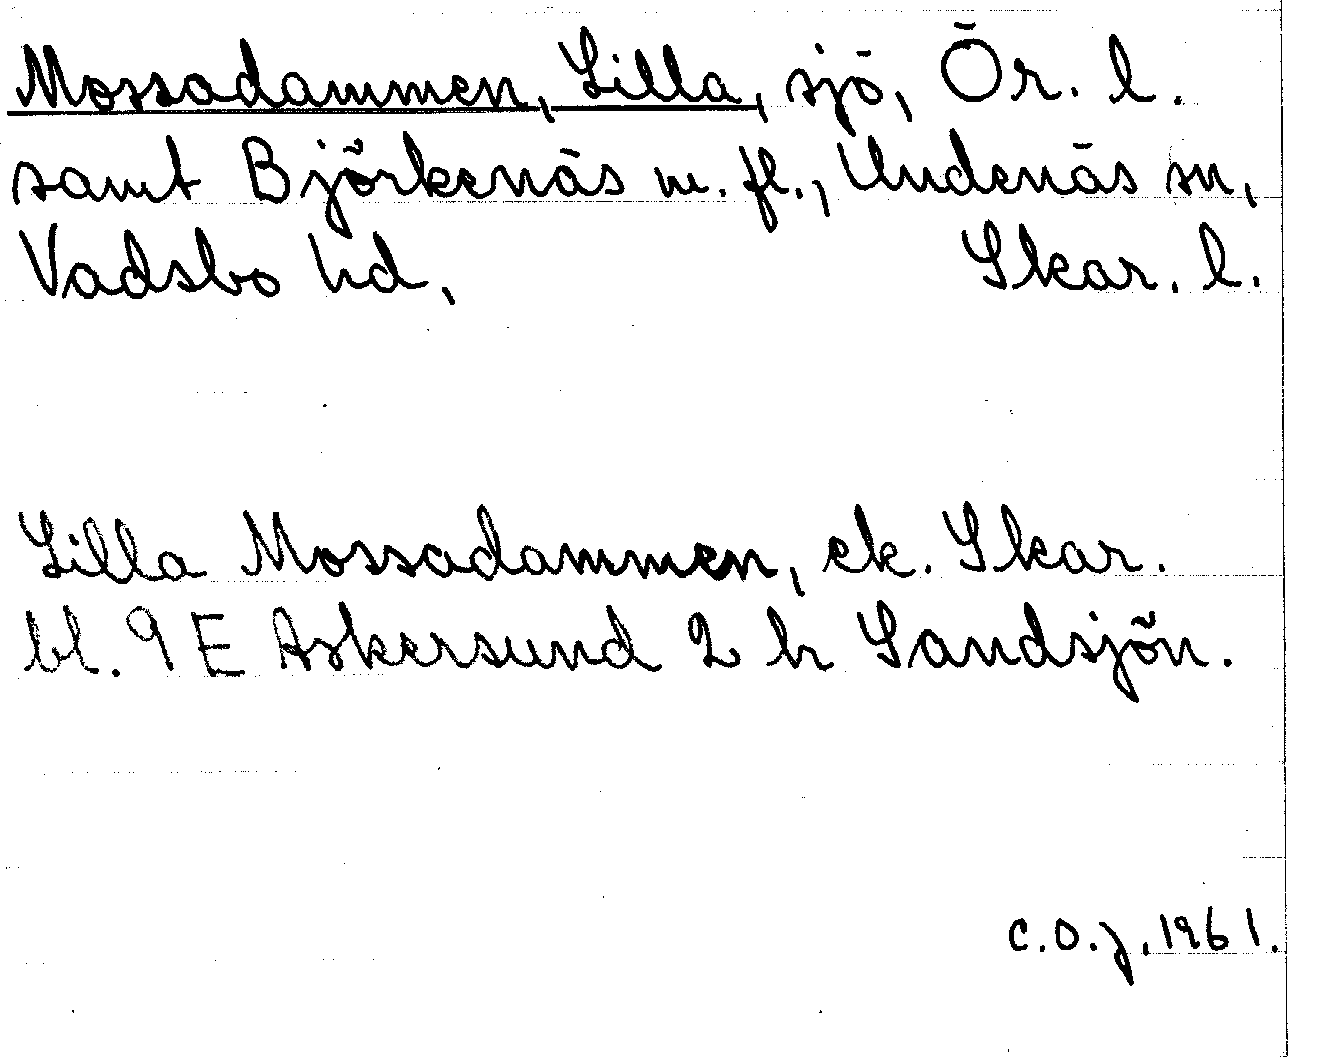 Mossadammen, Lilla, sjö, Ör. l.
samt Björkenäs m. fl., Undenäs sn,
Vadsbo hd, Skar. l.
Lilla Mossadammen, ek. Skar.
bl. 9 E Askersund 2 h Sandsjön.
C.O.J. 1961.